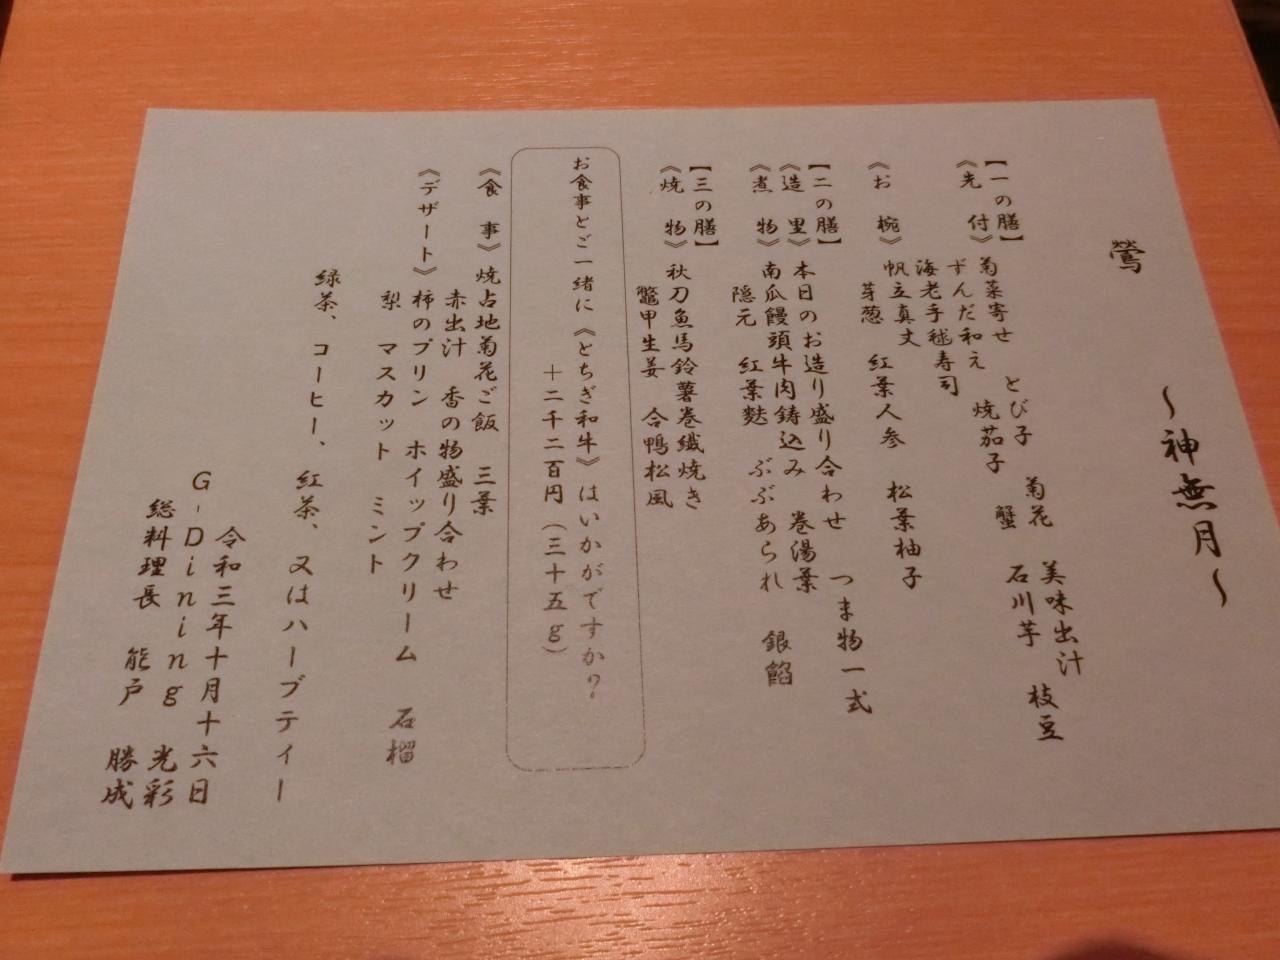 鶯　～神無月～
【一の膳】
《先　付》菊菜寄せ　とび子　菊花　美味出汁
ずんだ和え　焼茄子　蟹　石川芋　枝豆
海老手毬寿司
《お　椀》帆立真丈
芽葱　紅葉人参　松葉柚子
【二の膳】
《造　里》本日のお造り盛り合わせ　つま物一式
《煮　物》南瓜饅頭牛肉鋳込み　巻湯葉　銀餡
隠元　紅葉麩　ぶぶあられ
【三の膳】
《焼　物》秋刀魚馬鈴薯巻繊焼き
鼈甲生姜　合鴨松風
お食事とご一緒に《とちぎ和牛》はいかがですか？
＋二千二百円（三十五ｇ）
《食　事》焼占地菊花ご飯　三葉
赤出汁　香の物盛り合わせ
《デザート》柿のプリン　ホイップクリーム　石榴
梨　マスカット　ミント
緑茶、コーヒー、紅茶、又はハーブティー
令和三年十月十六日
Ｇ‐Ｄｉｎｉｎｇ　光彩
総料理長　能戸　勝成